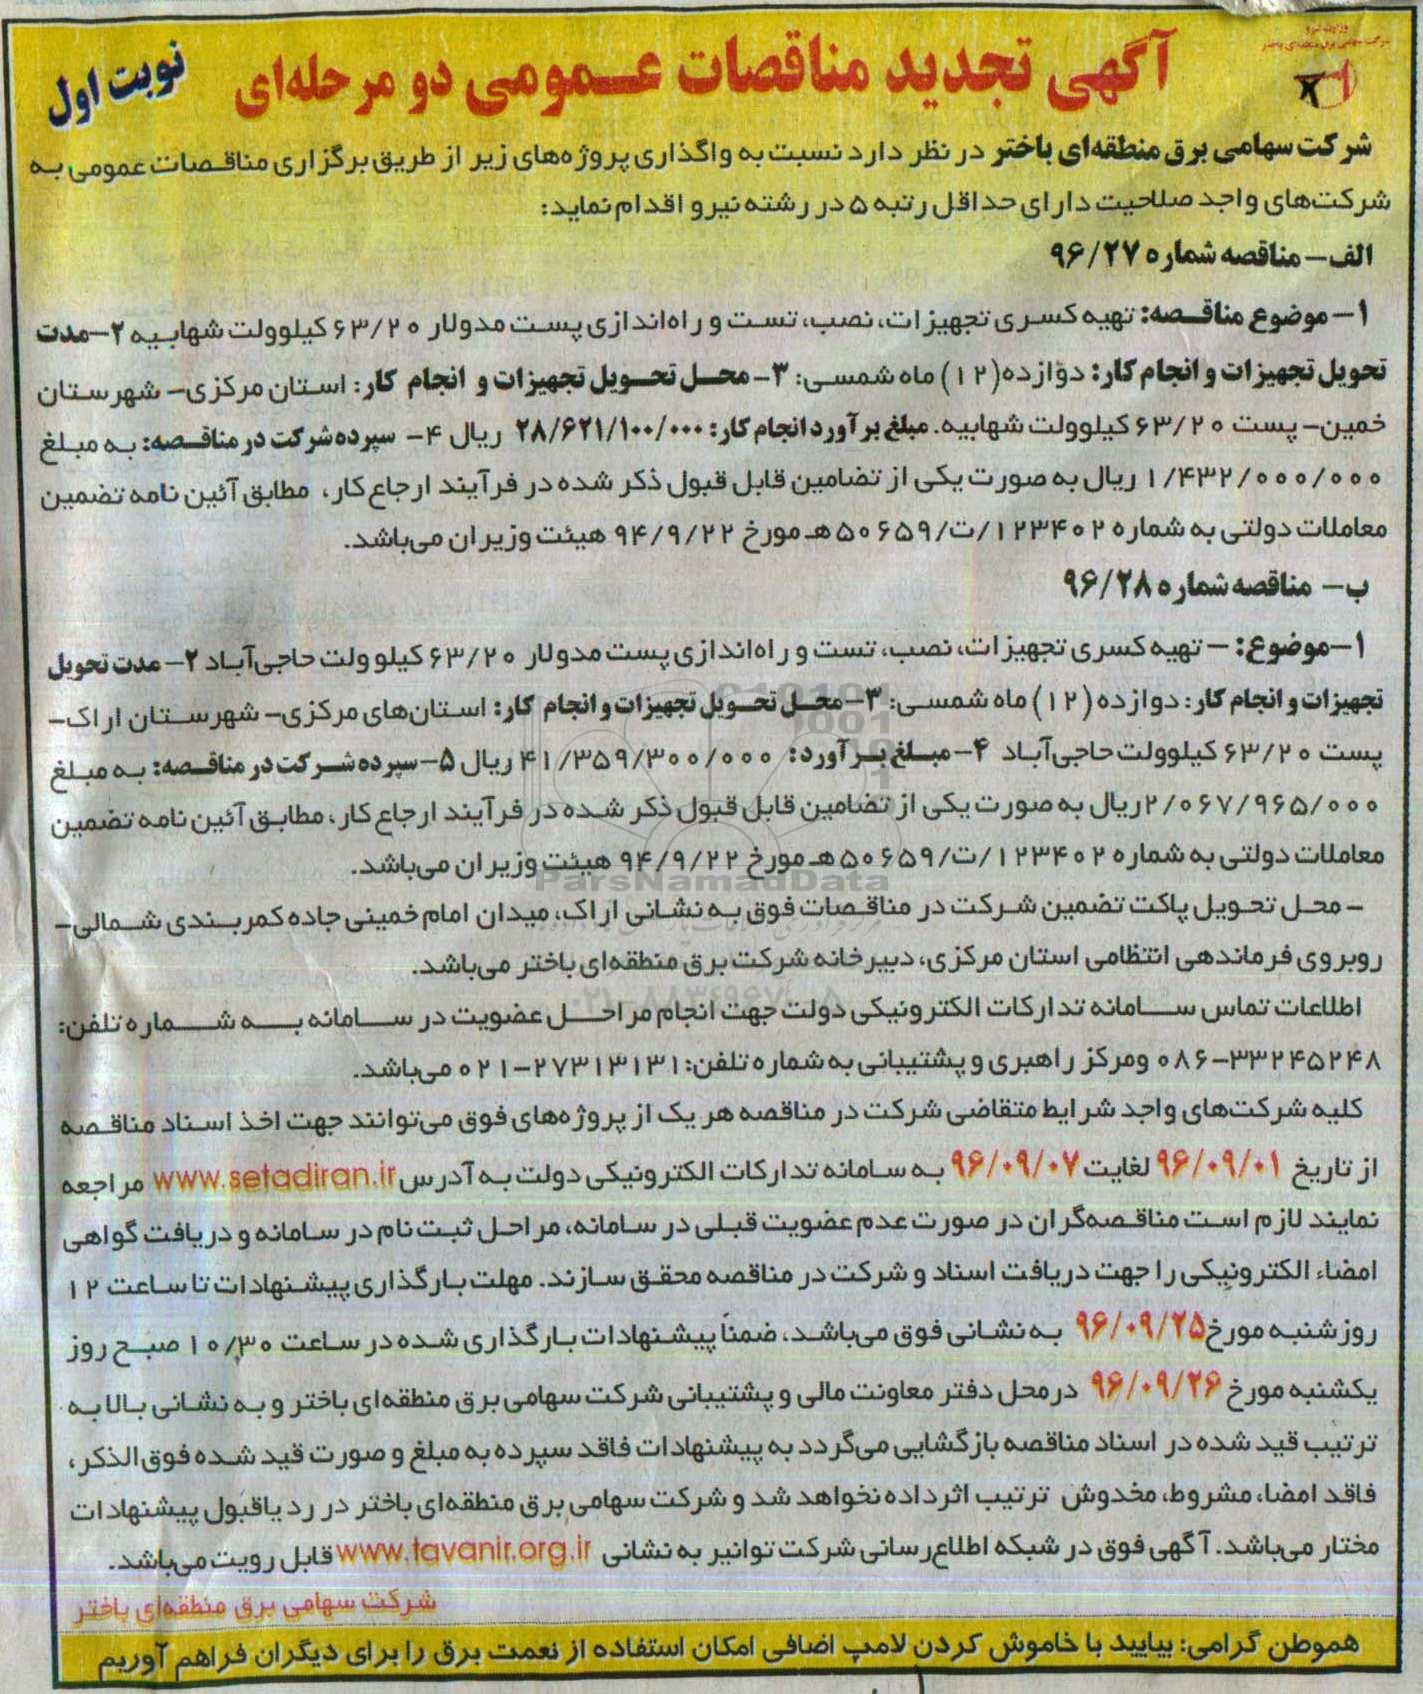 وزارت نیرو
شرکت سهامی برق منطقه‌ای باختر
آگهی تجدید مناقصات عمومی دو مرحله‌ای
نوبت اول
شرکت سهامی برق منطقه‌ای باختر در نظر دارد نسبت به واگذاری پروژه‌های زیر از طریق برگزاری مناقصات عمومی به
شرکت‌های واجد صلاحیت دارای حداقل رتبه ۵ در رشته نیرو اقدام نماید:
الف- مناقصه شماره ۹۶/۲۷
۱- موضوع مناقصه: تهیه کسری تجهیزات، نصب، تست و راه‌اندازی پست مدولار ۶۳/۲۰ کیلوولت شهابیه ۲-مدت
تحویل تجهیزات و انجام کار: دوازده(۱۲) ماه شمسی: ۳- محل تحویل تجهیزات و انجام کار: استان مرکزی- شهرستان
خمین- پست ۶۳/۲۰ کیلوولت شهابیه. مبلغ برآورد انجام کار: ۲۸/۶۲۱/۱۰۰/۰۰۰ ریال ۴- سپرده شرکت در مناقصه: به مبلغ
۱/۴۳۲/۰۰۰/۰۰۰ ریال به صورت یکی از تضامین قابل قبول ذکر شده در فرآیند ارجاع کار، مطابق آئین نامه تضمین
معاملات دولتی به شماره ۱۲۳۴۰۲/ت/۵۰۶۵۹هـ مورخ ۹۴/۹/۲۲ هیئت وزیران می‌باشد.
ب- مناقصه شماره ۹۶/۲۸
۱-موضوع: - تهیه کسری تجهیزات، نصب، تست و راه‌اندازی پست مدولار ۶۳/۲۰ کیلو ولت حاجی‌آباد ۲- مدت تحویل
تجهیزات و انجام کار: دوازده (۱۲) ماه شمسی: ۳-محل تحویل تجهیزات و انجام کار: استان‌های مرکزی- شهرستان اراک-
پست ۶۳/۲۰ کیلوولت حاجی‌آباد ۴- مبلغ برآورد: ۴۱/۳۵۹/۳۰۰/۰۰۰ ریال ۵-سپرده شرکت در مناقصه: به مبلغ
۲/۰۶۷/۹۶۵/۰۰۰ریال به صورت یکی از تضامین قابل قبول ذکر شده در فرآیند ارجاع کار، مطابق آئین نامه تضمین
معاملات دولتی به شماره ۱۲۳۴۰۲/ت/۵۰۶۵۹هـ مورخ ۹۴/۹/۲۲ هیئت وزیران می‌باشد.
ParsNamadData
- محل تحویل پاکت تضمین شرکت در مناقصات فوق به نشانی اراک، میدان امام خمینی جاده کمربندی شمالی-
روبروی فرماندهی انتظامی استان مرکزی، دبیرخانه شرکت برق منطقه‌ای باختر می‌باشد.
اطلاعات تماس سامانه تدارکات الکترونیکی دولت جهت انجام مراحل عضویت در سامانه به شماره تلفن:
۰۸۶-۳۳۲۴۵۲۴۸ ومرکز راهبری و پشتیبانی به شماره تلفن:۰۲۱-۲۷۳۱۳۱۳۱ می‌باشد.
کلیه شرکت‌های واجد شرایط متقاضی شرکت در مناقصه هر یک از پروژه‌های فوق می‌توانند جهت اخذ اسناد مناقصه
از تاریخ ۹۶/۰۹/۰۱ لغایت ۹۶/۰۹/۰۷ به سامانه تدارکات الکترونیکی دولت به آدرس www.setadiran.ir مراجعه
نمایند لازم است مناقصه‌گران در صورت عدم عضویت قبلی در سامانه، مراحل ثبت نام در سامانه و دریافت گواهی
امضاء الکترونیکی را جهت دریافت اسناد و شرکت در مناقصه محقق سازند. مهلت بارگذاری پیشنهادات تا ساعت ۱۲
روز شنبه مورخ۹۶/۰۹/۲۵ به نشانی فوق می‌باشد، ضمناً پیشنهادات بارگذاری شده در ساعت ۱۰/۳۰ صبح روز
یکشنبه مورخ ۹۶/۰۹/۲۶ درمحل دفتر معاونت مالی و پشتیبانی شرکت سهامی برق منطقه‌ای باختر و به نشانی بالا به
ترتیب قید شده در اسناد مناقصه بازگشایی می‌گردد به پیشنهادات فاقد سپرده به مبلغ و صورت قید شده فوق‌الذکر،
فاقد امضا، مشروط، مخدوش ترتیب اثر داده نخواهد شد و شرکت سهامی برق منطقه‌ای باختر در رد یاقبول پیشنهادات
مختار می‌باشد. آگهی فوق در شبکه اطلاع‌رسانی شرکت توانیر به نشانی www.tavanir.org.ir قابل رویت می‌باشد.
شرکت سهامی برق منطقه‌ای باختر
هموطن گرامی: بیایید با خاموش کردن لامپ اضافی امکان استفاده از نعمت برق را برای دیگران فراهم آوریم